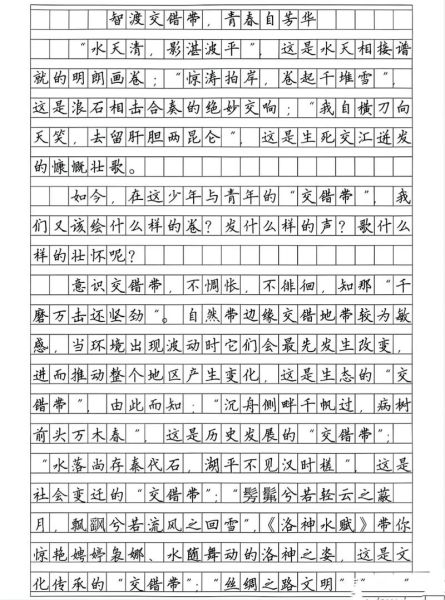 智渡交错带，青春自芳华
“水天清，影湛波平”，这是水天相接谱
就的明朗画卷；“惊涛拍岸，卷起千堆雪”，
这是浪石相击合奏的绝妙交响；“我自横刀向
天笑，去留肝胆两昆仑”，这是生死交汇迸发
的慷慨壮歌。
如今，在这少年与青年的“交错带”，我
们又该绘什么样的卷？发什么样的声？歌什么
样的壮怀呢？
意识交错带，不惆怅，不徘徊，知那“千
磨万击还坚劲”。自然带边缘交错地带较为敏
感，当环境出现波动时它们会最先发生改变，
进而推动整个地区产生变化，这是生态的“交
错带”，由此而知：“沉舟侧畔千帆过，病树
前头万木春”，这是历史发展的“交错带”；
“水落尚存秦代石，湖平不见汉时槎”，这是
社会变迁的“交错带”；“髣髴兮若轻云之蔽
月，飘飖兮若流风之回雪”，《洛神水赋》带你
惊艳娉婷袅娜、水随舞动的洛神之姿，这是文
化传承的“交错带”；“丝绸之路文明”“